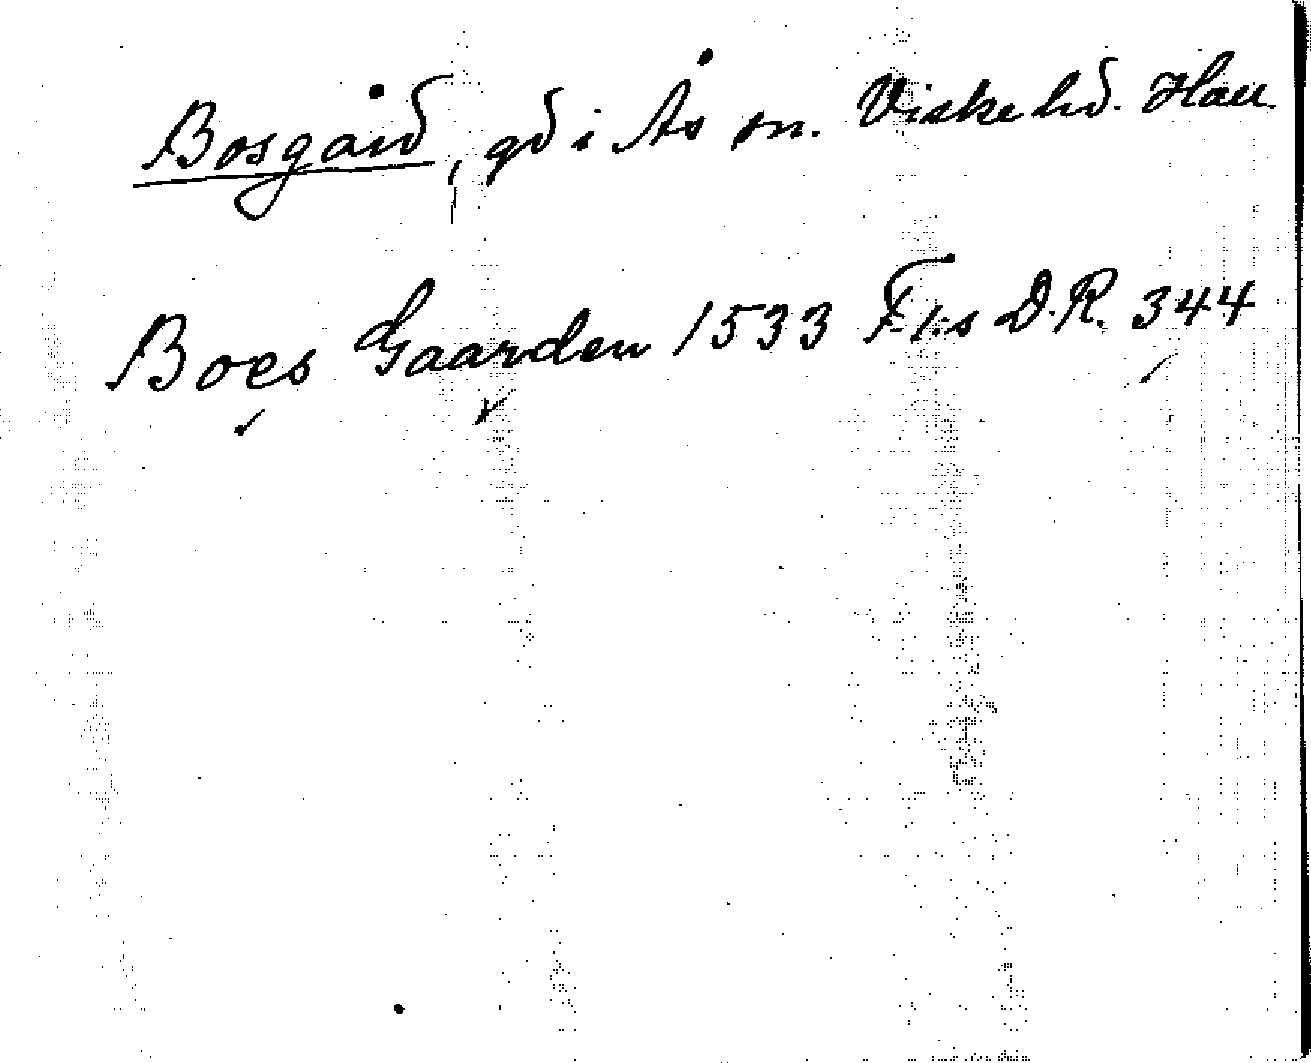 Bosgård, gd i Ås sn. Viske hd. Hall.
Boes Gaarden 1533 F I:s D.R. 344